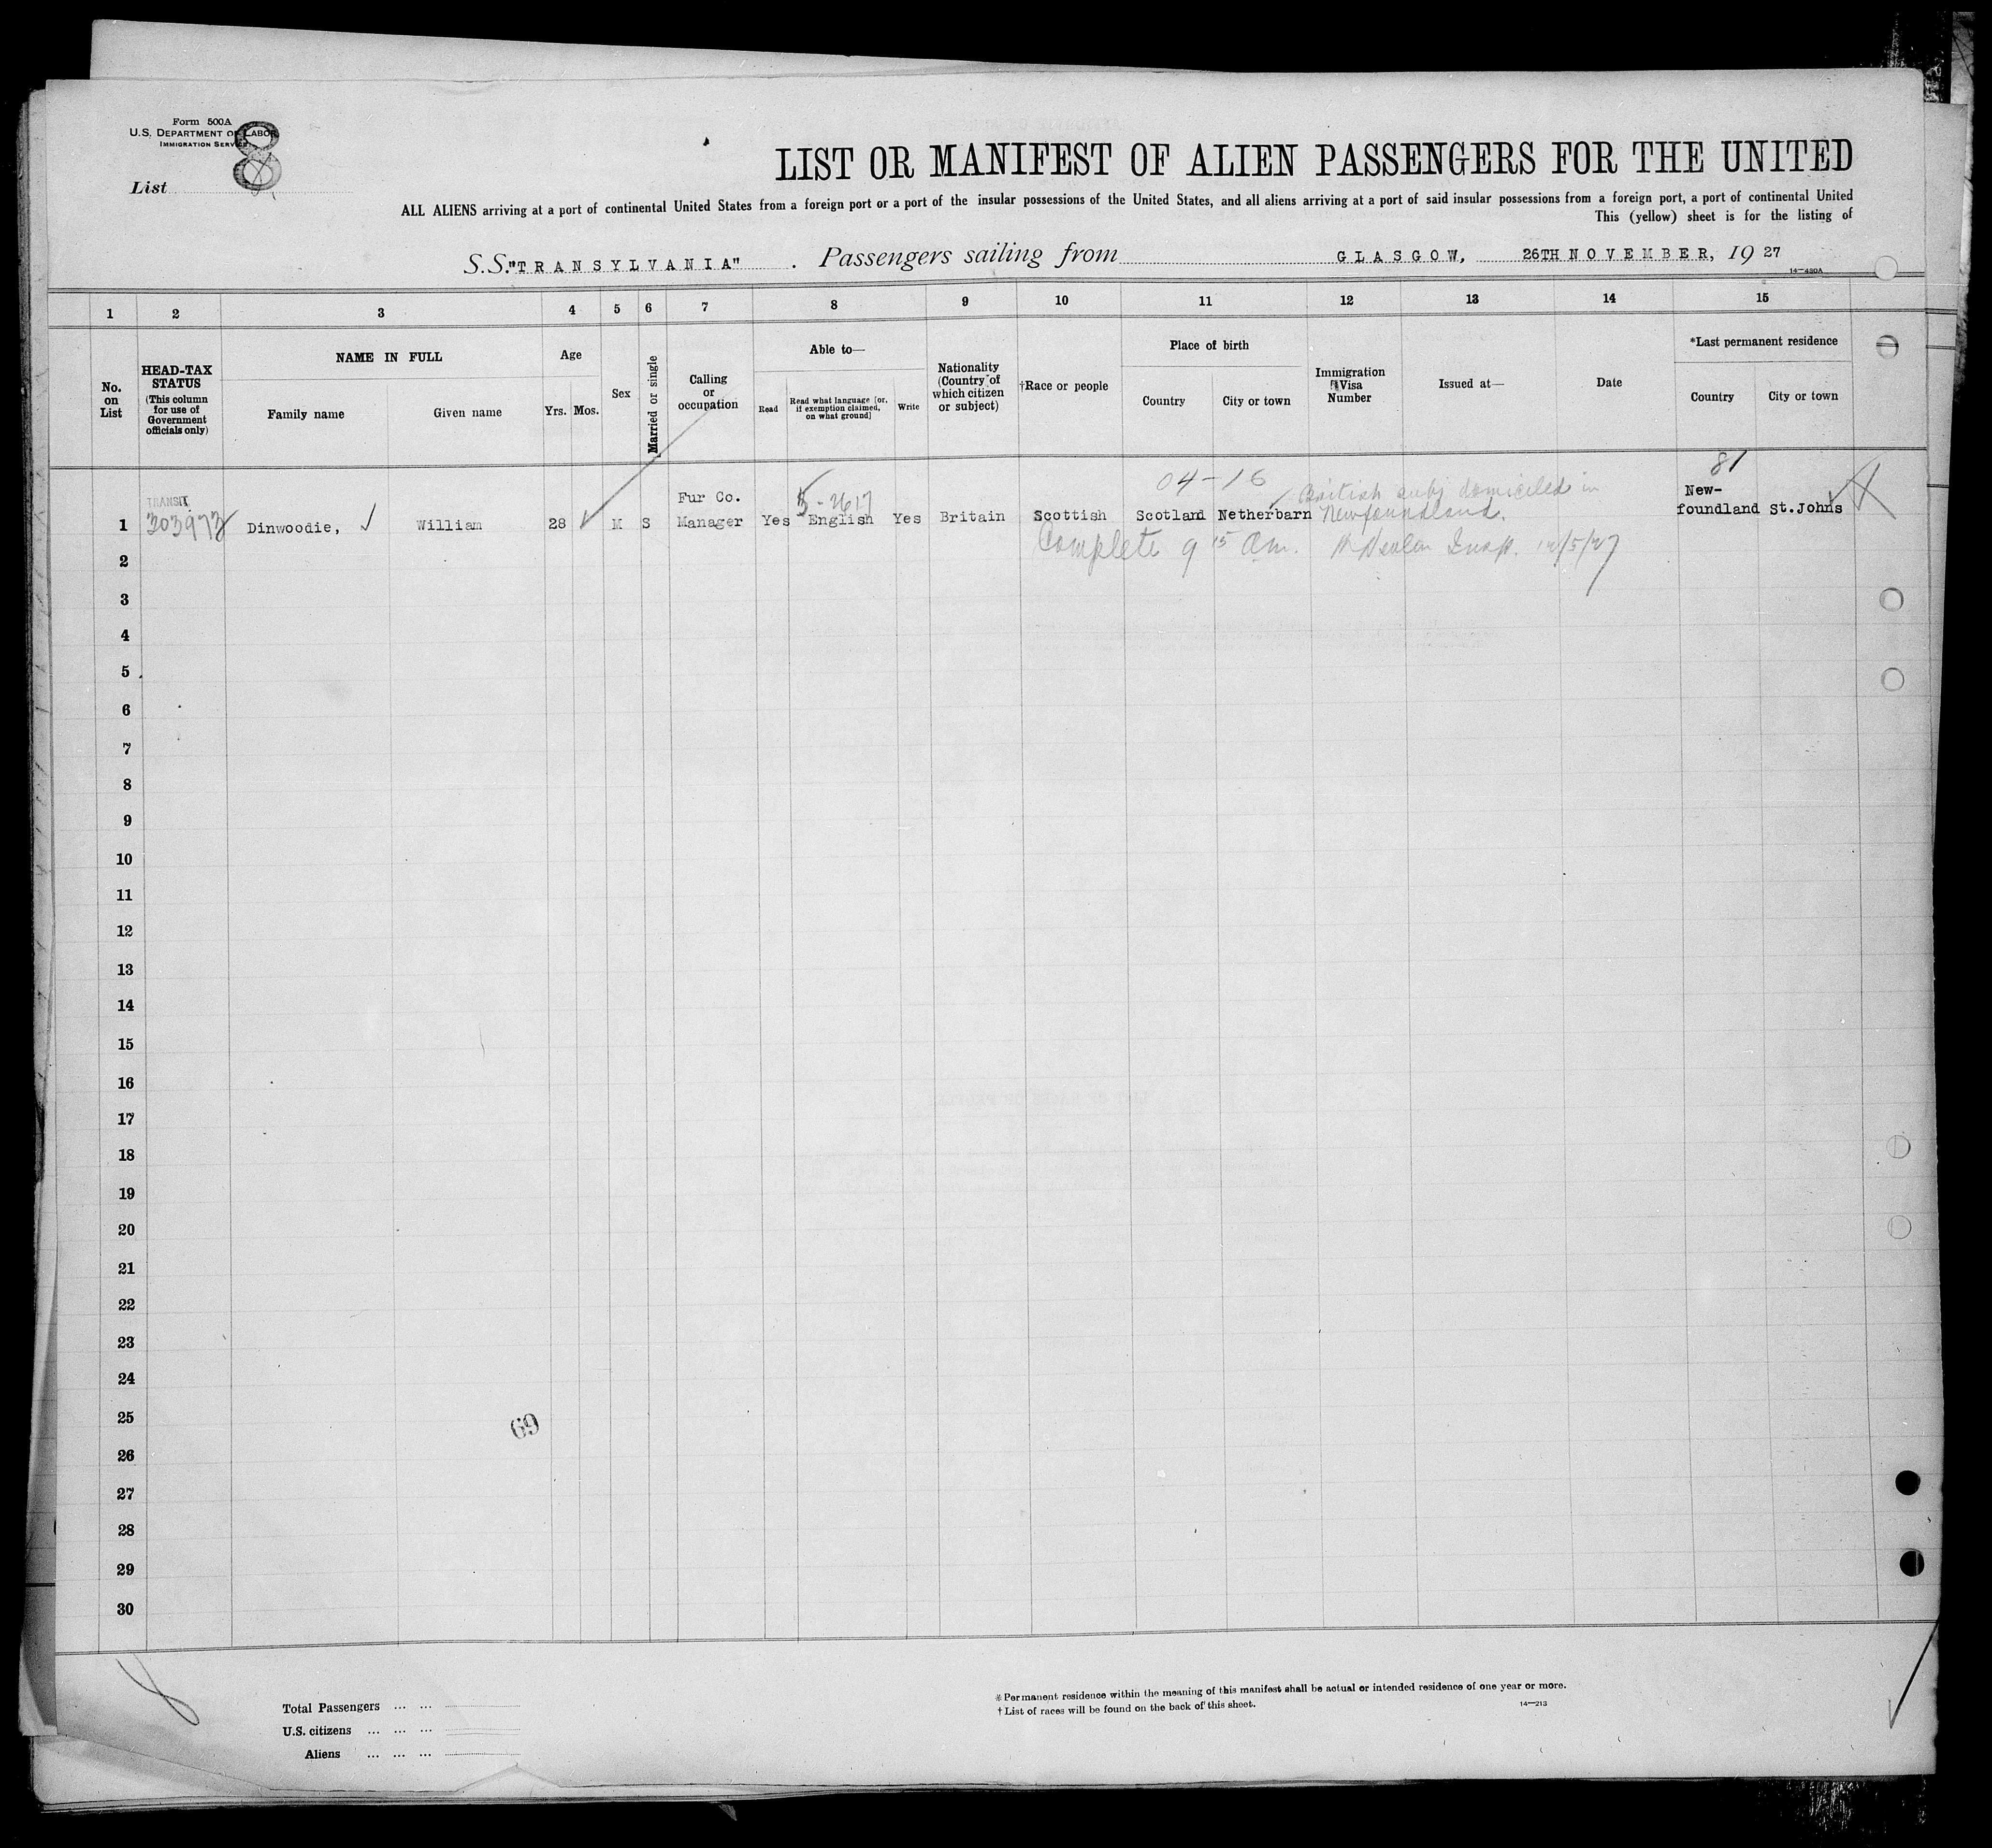 Form 500A
U.S. DEPARTMENT OF LABOR
IMMIGRATION SERVICE
8
List
LIST OR MANIFEST OF ALIEN PASSENGERS FOR THE UNITED
ALL ALIENS arriving at a port of continental United States from a foreign port or a port of the insular possessions of the United States, and all aliens arriving at a port of said insular possessions from a foreign port, a port of continental United
This (yellow) sheet is for the listing of
S.S. "TRANSYLVANIA" . Passengers sailing from GLASGOW, 26TH NOVEMBER, 19 27
14—480A
1 2 3 4 5 6 7 8 9 10 11 12 13 14 15
No. on List
HEAD-TAX STATUS
(This column for use of Government officials only)
NAME IN FULL
Family name Given name
Age
Yrs. Mos.
Sex
Married or single
Calling or occupation
Able to—
Read
Read what language [or, if exemption claimed, on what ground]
Write
Nationality (Country of which citizen or subject)
†Race or people
Place of birth
Country City or town
Immigration Visa Number
Issued at—
Date
*Last permanent residence
Country City or town
04-16 81
TRANSIT Fur Co. British subj domiciled in New-
1 303973 Dinwoodie, William 28 M S Manager Yes English Yes Britain Scottish Scotland Netherbarn Newfoundland. foundland St.Johns
Complete 9 15 Am. Insp. 12/5/27
2
3
4
5
6
7
8
9
10
11
12
13
14
15
16
17
18
19
20
21
22
23
24
25
69
26
27
28
29
30
8
Total Passengers ... ...
U.S. citizens ... ... ...
Aliens ... ... ...
*Permanent residence within the meaning of this manifest shall be actual or intended residence of one year or more.
† List of races will be found on the back of this sheet.
14—213